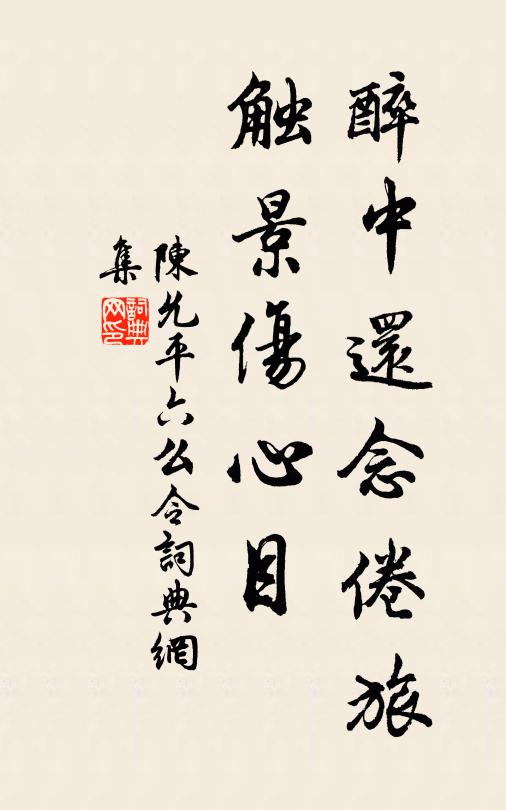 醉中還念倦旅
触景傷心目
陳允平六么令詞典網
集
詞典
网印